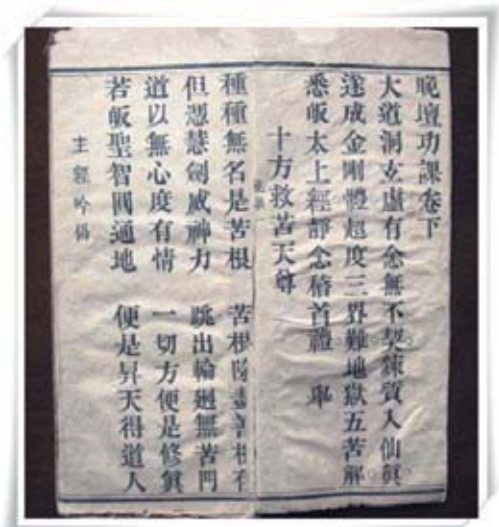 晚壇功課卷下
大道洞玄虛有念無不契鍊質入仙眞
遂成金剛體超度三界難地獄五苦解
悉皈太上經靜念稽首禮 舉
十方救苦天尊
種種無名是苦根 苦根除盡善根存
但憑慧劍威神力 跳出輪迴無苦門
道以無心度有情 一切方便是修眞
若皈聖智圓通地 便是昇天得道人
主經吟偈